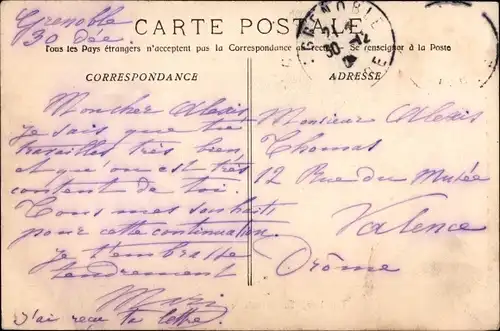 Grenoble
30 Déc.
CARTE POSTALE
Tous les Pays étrangers n'acceptent pas la Correspondance au recto. Se renseigner à la Poste
CORRESPONDANCE
Mon cher Alexis
Je sais que tu
travailles très bien
et que l'on est très
content de toi.
Tous mes souhaits
pour cette continuation.
Je t'embrasse
tendrement
J'ai reçu ta lettre.
GRENOBLE
30 - 12
ADRESSE
Monsieur Alexis
Thomas
12 Rue du Musée
Valence
Drôme